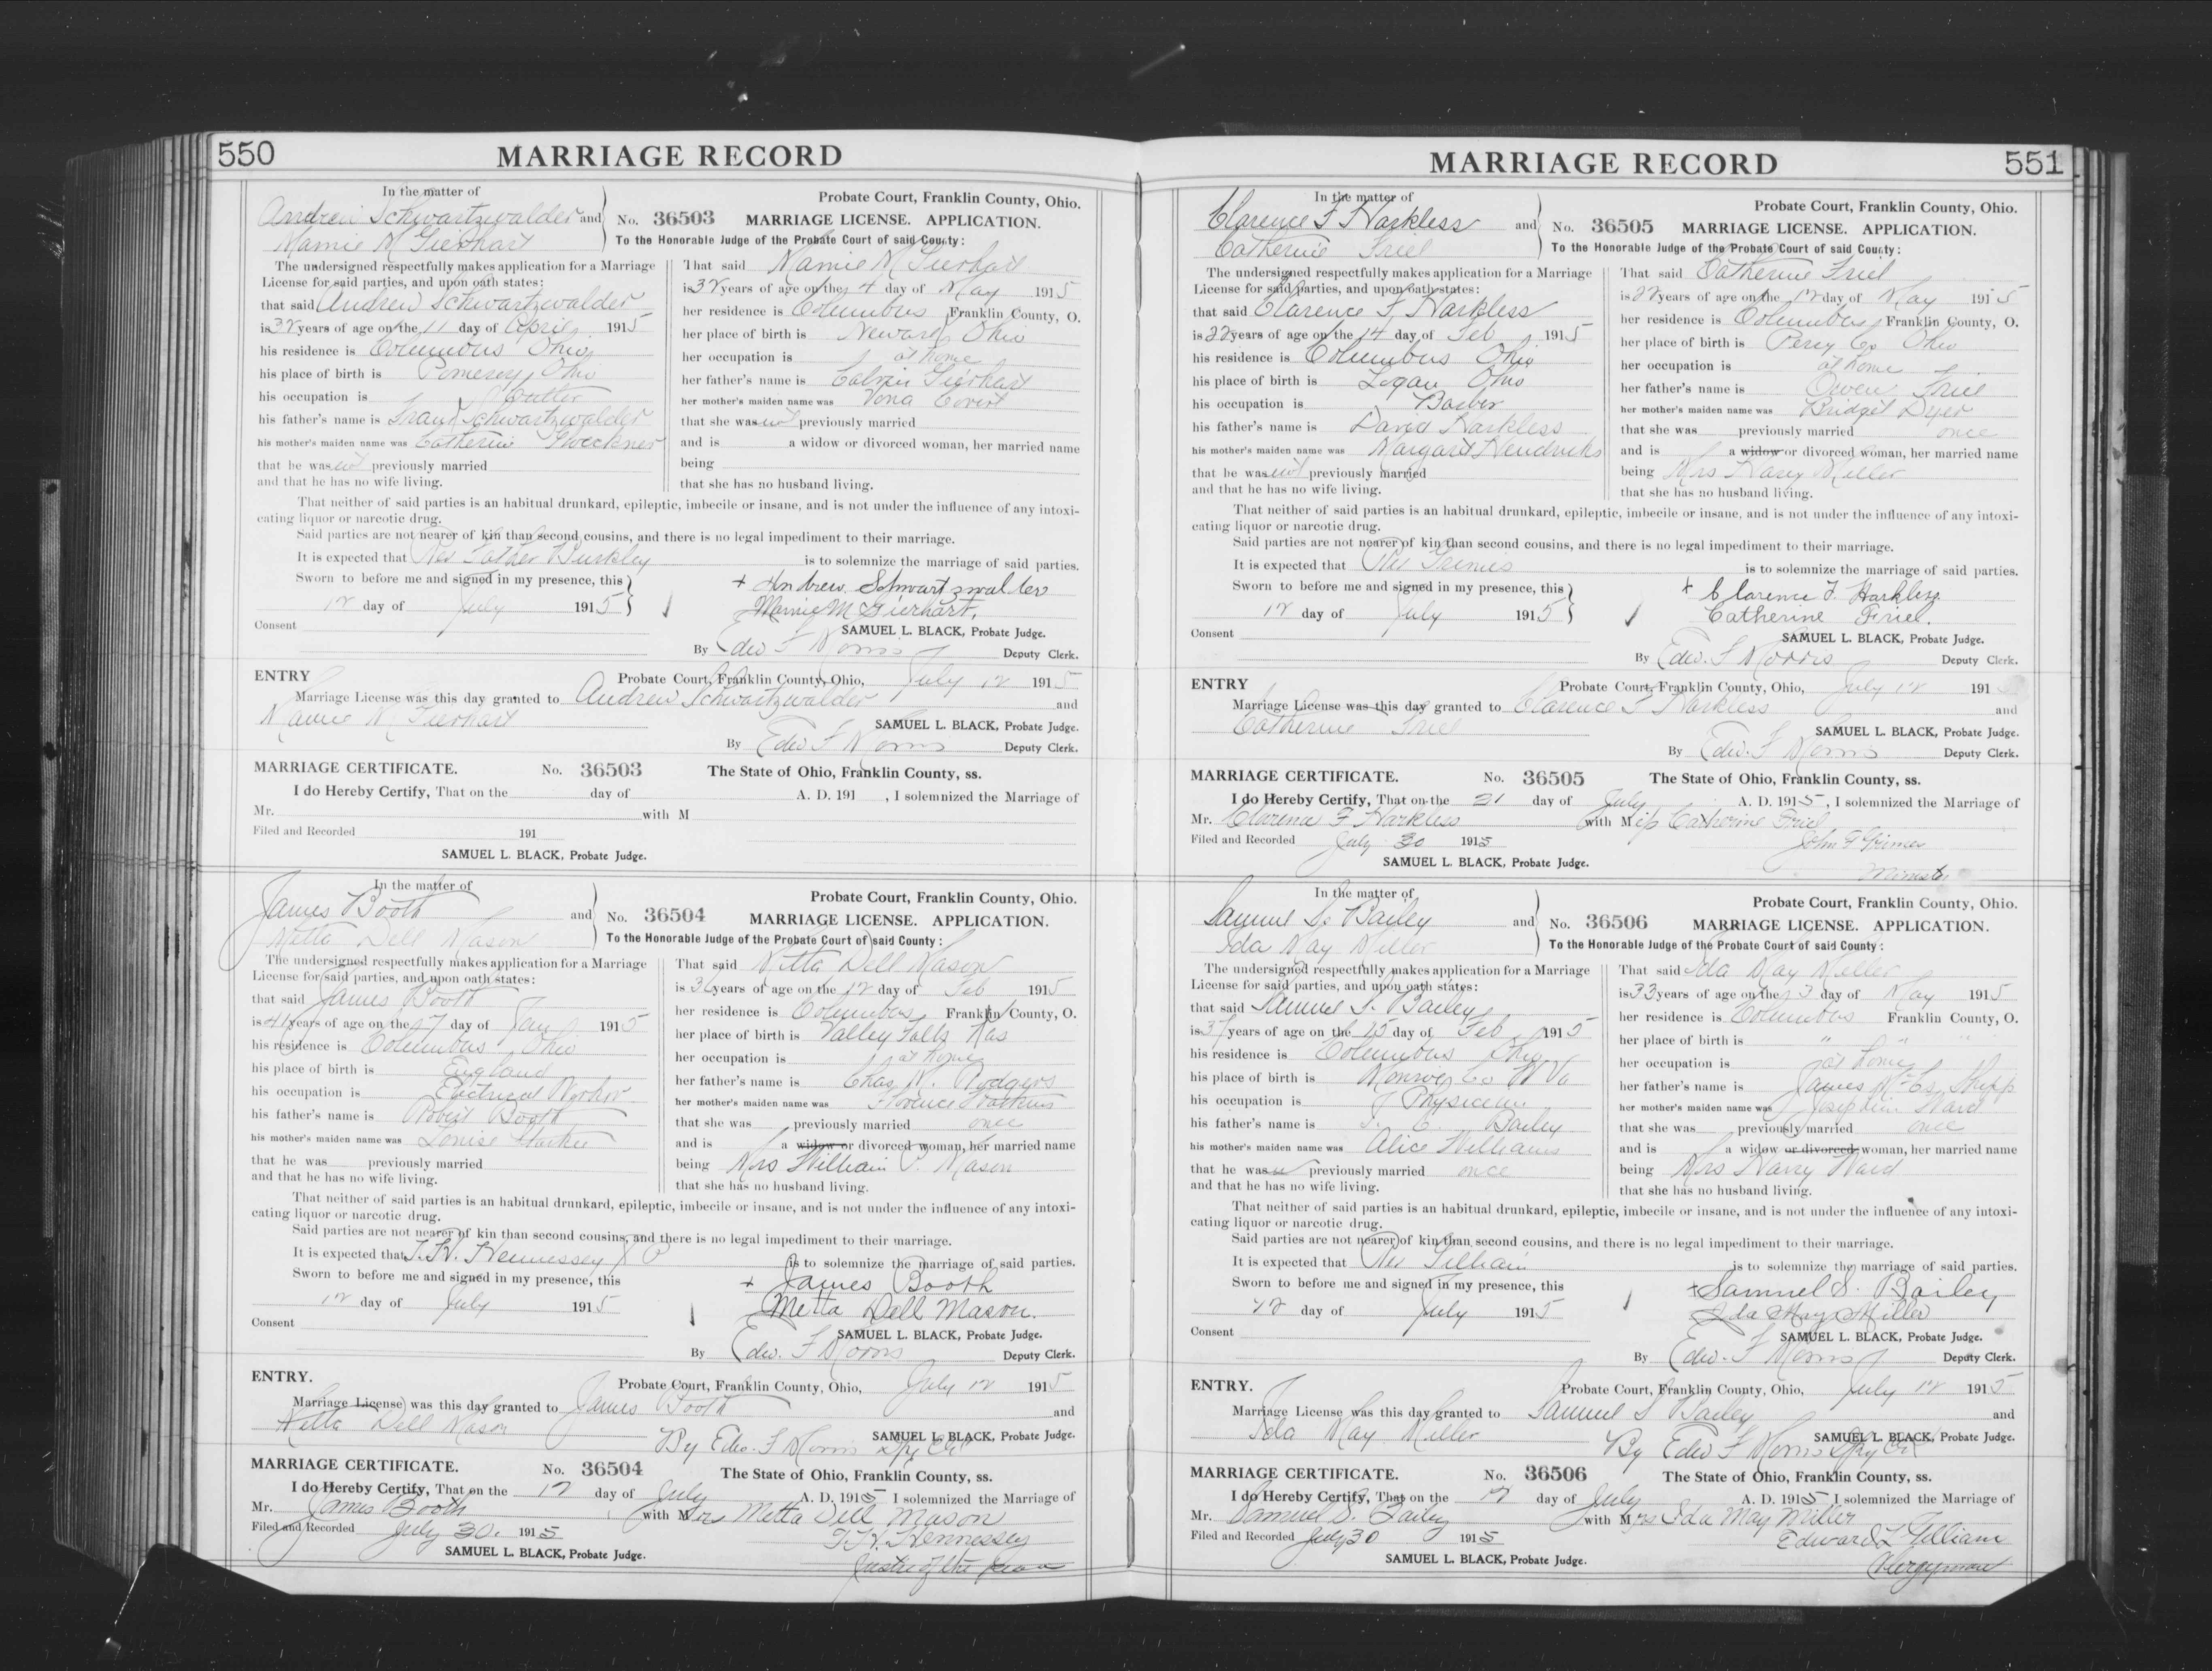 550
MARRIAGE RECORD
In the matter of
Andrew Schwartzwalder and
Mamie M Gierhart
Probate Court, Franklin County, Ohio.
No. 36503 MARRIAGE LICENSE. APPLICATION.
To the Honorable Judge of the Probate Court of said County:
The undersigned respectfully makes application for a Marriage
License for said parties, and upon oath states:
that said Andrew Schwartzwalder
is 32 years of age on the 11 day of April 1915
his residence is Columbus Ohio
his place of birth is Pomeroy Ohio
his occupation is Cutter
his father's name is Schwartzwalder
his mother's maiden name was
that he was not previously married
and that he has no wife living.
That said Mamie M Gierhart
is 32 years of age on the 4 day of May 1915
her residence is Columbus Franklin County, O.
her place of birth is Newark Ohio
her occupation is at home
her father's name is Calvin Gierhart
her mother's maiden name was Vona Covert
that she was not previously married
and is a widow or divorced woman, her married name
being
that she has no husband living.
That neither of said parties is an habitual drunkard, epileptic, imbecile or insane, and is not under the influence of any intoxi-
cating liquor or narcotic drug.
Said parties are not nearer of kin than second cousins, and there is no legal impediment to their marriage.
It is expected that Rev Father Burkley is to solemnize the marriage of said parties.
Sworn to before me and signed in my presence, this
12 day of July 1915
+ Andrew Schwartzwalder
Mamie M Gierhart.
Consent
SAMUEL L. BLACK, Probate Judge.
By Edw F Morris Deputy Clerk.
ENTRY
Probate Court, Franklin County, Ohio, July 12 1915
Marriage License was this day granted to Andrew Schwartzwalder and
Mamie M Gierhart
SAMUEL L. BLACK, Probate Judge.
By Edw F Morris Deputy Clerk.
MARRIAGE CERTIFICATE. No. 36503 The State of Ohio, Franklin County, ss.
I do Hereby Certify, That on the day of A. D. 191 , I solemnized the Marriage of
Mr. with M
Filed and Recorded 191
SAMUEL L. BLACK, Probate Judge.
In the matter of
James Booth and
Metta Dell Mason
Probate Court, Franklin County, Ohio.
No. 36504 MARRIAGE LICENSE. APPLICATION.
To the Honorable Judge of the Probate Court of said County:
The undersigned respectfully makes application for a Marriage
License for said parties, and upon oath states:
that said James Booth
is 41 years of age on the 17 day of Jan 1915
his residence is Columbus Ohio
his place of birth is England
his occupation is Electrical Worker
his father's name is Robert Booth
his mother's maiden name was Louise
that he was previously married
and that he has no wife living.
That said Metta Dell Mason
is years of age on the 12 day of Feb 1915
her residence is Columbus Franklin County, O.
her place of birth is Valley Falls Kas
her occupation is at home
her father's name is Chas. N. Rodgers
her mother's maiden name was Florence
that she was previously married once
and is a widow or divorced woman, her married name
being Mrs William P. Mason
that she has no husband living.
That neither of said parties is an habitual drunkard, epileptic, imbecile or insane, and is not under the influence of any intoxi-
cating liquor or narcotic drug.
Said parties are not nearer of kin than second cousins, and there is no legal impediment to their marriage.
It is expected that T. H. Hennessey J P is to solemnize the marriage of said parties.
Sworn to before me and signed in my presence, this
12 day of July 1915
+ James Booth
Metta Dell Mason.
Consent
SAMUEL L. BLACK, Probate Judge.
By Edw. F Morris Deputy Clerk.
ENTRY.
Probate Court, Franklin County, Ohio, July 12 1915
Marriage License was this day granted to James Booth and
Metta Dell Mason
SAMUEL L. BLACK, Probate Judge.
By Edw. F Morris Dpy Clk
MARRIAGE CERTIFICATE. No. 36504 The State of Ohio, Franklin County, ss.
I do Hereby Certify, That on the 12 day of July A. D. 1915 I solemnized the Marriage of
Mr. James Booth with Mrs Metta Dell Mason
Filed and Recorded July 30. 1915
T. H. Hennessey
Justice of the Peace
SAMUEL L. BLACK, Probate Judge.
MARRIAGE RECORD
551
In the matter of
Clarence F Harkless and
Catherine Friel
Probate Court, Franklin County, Ohio.
No. 36505 MARRIAGE LICENSE. APPLICATION.
To the Honorable Judge of the Probate Court of said County:
The undersigned respectfully makes application for a Marriage
License for said parties, and upon oath states:
that said Clarence F Harkless
is 22 years of age on the 14 day of Feb 1915
his residence is Columbus Ohio
his place of birth is Logan Ohio
his occupation is Barber
his father's name is David Harkless
his mother's maiden name was Margaret Hendricks
that he was not previously married
and that he has no wife living.
That said Catherine Friel
is 22 years of age on the 12 day of May 1915
her residence is Columbus Franklin County, O.
her place of birth is Perry Co Ohio
her occupation is at home
her father's name is Owen Friel
her mother's maiden name was Bridget Dyer
that she was previously married once
and is a widow or divorced woman, her married name
being Mrs Harry Miller
that she has no husband living.
That neither of said parties is an habitual drunkard, epileptic, imbecile or insane, and is not under the influence of any intoxi-
cating liquor or narcotic drug.
Said parties are not nearer of kin than second cousins, and there is no legal impediment to their marriage.
It is expected that Rev is to solemnize the marriage of said parties.
Sworn to before me and signed in my presence, this
12 day of July 1915
+ Clarence F. Harkless
Catherine Friel.
Consent
SAMUEL L. BLACK, Probate Judge.
By Edw. F Morris Deputy Clerk.
ENTRY
Probate Court, Franklin County, Ohio, July 12 191
Marriage License was this day granted to Clarence F Harkless and
Catherine Friel
SAMUEL L. BLACK, Probate Judge.
By Edw. F Morris Deputy Clerk.
MARRIAGE CERTIFICATE. No. 36505 The State of Ohio, Franklin County, ss.
I do Hereby Certify, That on the 21 day of July A. D. 1915, I solemnized the Marriage of
Mr. Clarence F Harkless with Miss Catherine Friel
Filed and Recorded July 30 1915
John F Grimes
Minister
SAMUEL L. BLACK, Probate Judge.
In the matter of
Samuel S. Bailey and
Ida May Miller
Probate Court, Franklin County, Ohio.
No. 36506 MARRIAGE LICENSE. APPLICATION.
To the Honorable Judge of the Probate Court of said County:
The undersigned respectfully makes application for a Marriage
License for said parties, and upon oath states:
that said Samuel S. Bailey
is 37 years of age on the 15 day of Feb 1915
his residence is Columbus Ohio
his place of birth is Monroe Co W Va
his occupation is Physician
his father's name is Bailey
his mother's maiden name was Alice Williams
that he was previously married once
and that he has no wife living.
That said Ida May Miller
is 33 years of age on the 13 day of May 1915
her residence is Columbus Franklin County, O.
her place of birth is " " "
her occupation is at home
her father's name is James
her mother's maiden name was Josephine Ward
that she was previously married once
and is a widow or divorced woman, her married name
being Mrs Harry Ward
that she has no husband living.
That neither of said parties is an habitual drunkard, epileptic, imbecile or insane, and is not under the influence of any intoxi-
cating liquor or narcotic drug.
Said parties are not nearer of kin than second cousins, and there is no legal impediment to their marriage.
It is expected that Rev Gilliam is to solemnize the marriage of said parties.
Sworn to before me and signed in my presence, this
12 day of July 1915
+ Samuel S. Bailey
Ida May Miller
Consent
SAMUEL L. BLACK, Probate Judge.
By Edw. F Morris Deputy Clerk.
ENTRY.
Probate Court, Franklin County, Ohio, July 12 1915
Marriage License was this day granted to Samuel S Bailey and
Ida May Miller
SAMUEL L. BLACK, Probate Judge.
By Edw F Morris Dpy Clk
MARRIAGE CERTIFICATE. No. 36506 The State of Ohio, Franklin County, ss.
I do Hereby Certify, That on the 12 day of July A. D. 1915 I solemnized the Marriage of
Mr. Samuel S. Bailey with Mrs Ida May Miller
Filed and Recorded July 30 1915
Edward L Gilliam
Clergyman
SAMUEL L. BLACK, Probate Judge.